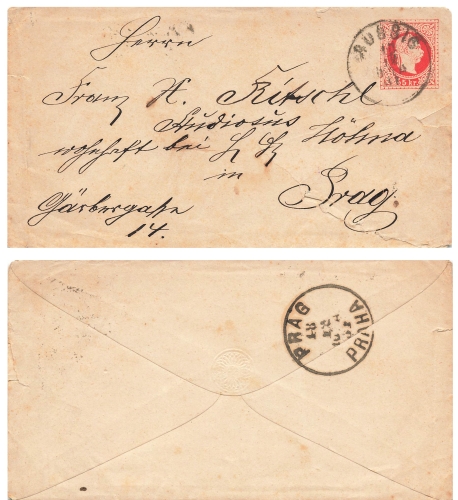 Herrn
Franz H. Kitschl
Studiosus
wohnhaft bei H H Höhna
in
Prag
Gärbergaße
14.
AUSSIG
5 kr.
PRAG
PRAHA